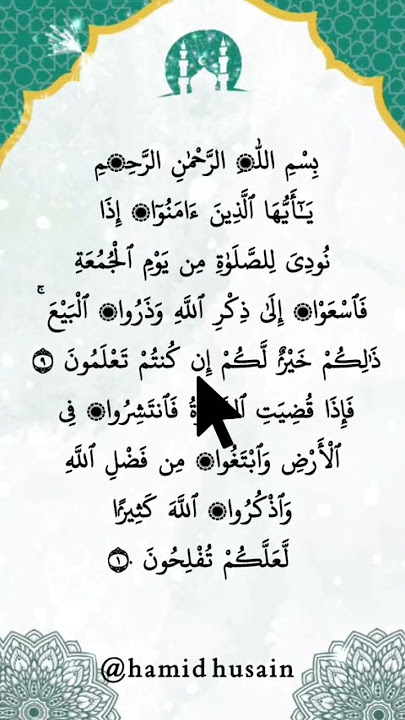 بِسْمِ اللّٰهِ الرَّحْمٰنِ الرَّحِيْمِ
يَـٰٓأَيُّهَا ٱلَّذِينَ ءَامَنُوٓا۟ إِذَا
نُودِىَ لِلصَّلَوٰةِ مِن يَوْمِ ٱلْجُمُعَةِ
فَٱسْعَوْا۟ إِلَىٰ ذِكْرِ ٱللَّهِ وَذَرُوا۟ ٱلْبَيْعَ ۚ
ذَٰلِكُمْ خَيْرٌ لَّكُمْ إِن كُنتُمْ تَعْلَمُونَ ٩
فَإِذَا قُضِيَتِ فَٱنتَشِرُوا۟ فِى
ٱلْأَرْضِ وَٱبْتَغُوا۟ مِن فَضْلِ ٱللَّهِ
وَٱذْكُرُوا۟ ٱللَّهَ كَثِيرًا
لَّعَلَّكُمْ تُفْلِحُونَ ١٠
@hamid husain